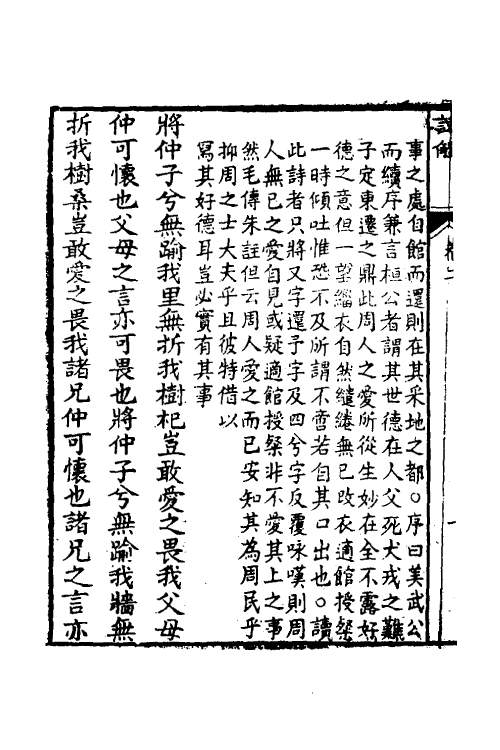 詩所
卷二
事之處自館而還則在其采地之都○序曰美武公
而續序兼言桓公者謂其世德在人父死犬戎之難
子定東遷之鼎此周人之愛所從生妙在全不露好
德之意但一望緇衣自然繾綣無已改衣適館授粲
一時傾吐惟恐不及所謂不啻若自其口出也○讀
此詩者只將又字還予字及四兮字反覆咏嘆則周
人無已之愛自見或疑適館授粲非不愛其上之事
然毛傳朱註但云周人愛之而已安知其為周民乎
抑周之士大夫乎且彼特借以
寫其好德耳豈必實有其事
將仲子兮無踰我里無折我樹杞豈敢愛之畏我父母
仲可懷也父母之言亦可畏也將仲子兮無踰我牆無
折我樹桑豈敢愛之畏我諸兄仲可懷也諸兄之言亦